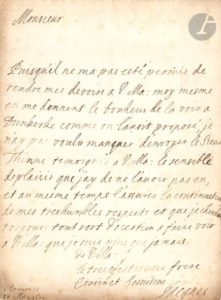 Monsieur
Puisqu'il ne m'a pas esté permis de
rendre mes devoirs a V. Ma: moy mesme
en me donnant le bonheur de la voir a
Dunkerke comme on l'avoit proposé, je
n'ay pas voulu manquer d'envoyer le
tesmoigner a V. Ma: le sensible
deplaisir que j'ay de ne l'avoir pas eu
et au mesme temps l'asseurer la continuation
de mes treshumbles respects et que je
tousjours tout sort d'occasion a faire voir
a V. Ma: que je suis plus que jamais
de V. Ma:
le tres affectionné frere
Cousin et serviteur
Jacques